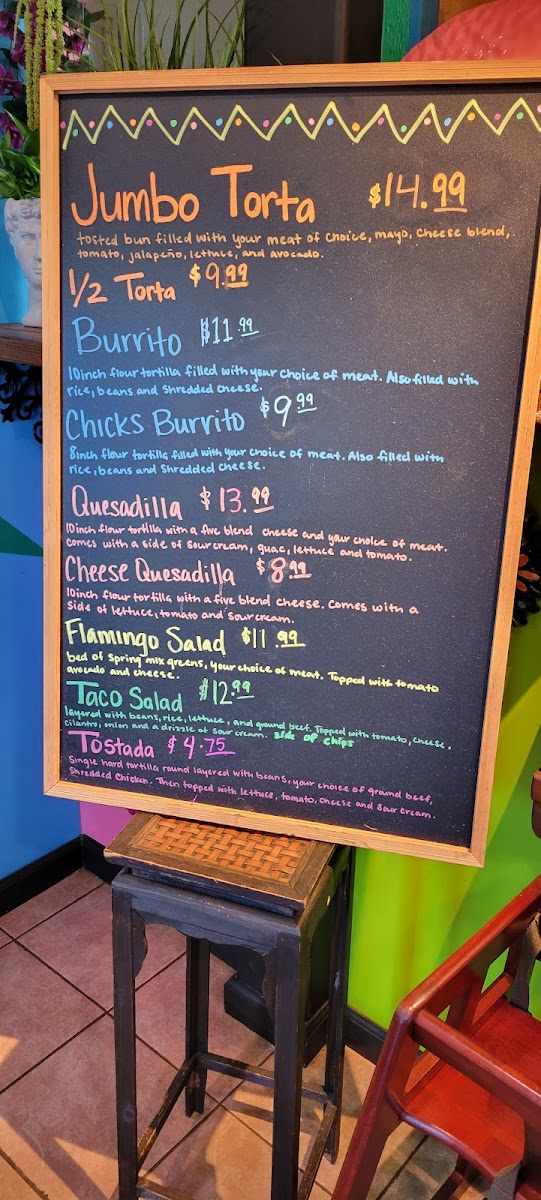 Jumbo Torta $14.99
tosted bun filled with your meat of choice, mayo, cheese blend,
tomato, jalapeño, lettuce, and avocado.
1/2 Torta $9.99
Burrito $11.99
10inch flour tortilla filled with your choice of meat. Also filled with
rice, beans and shredded cheese.
Chicks Burrito $9.99
8inch flour tortilla filled with your choice of meat. Also filled with
rice, beans and shredded cheese.
Quesadilla $13.99
10inch flour tortilla with a five blend cheese and your choice of meat.
Comes with a side of sour cream, guac, lettuce and tomato.
Cheese Quesadilla $8.99
10inch flour tortilla with a five blend cheese. Comes with a
side of lettuce, tomato and sour cream.
Flamingo Salad $11.99
bed of spring mix greens, your choice of meat. Topped with tomato
avocado and cheese.
Taco Salad $12.99
layered with beans, rice, lettuce, and ground beef. Topped with tomato, cheese,
cilantro, onion and a drizzle of sour cream. side of chips
Tostada $4.75
Single hard tortilla round layered with beans, your choice of ground beef,
Shredded Chicken. Then topped with lettuce, tomato, cheese and sour cream.